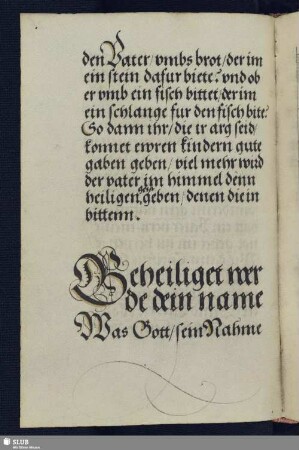 den Vater / vmbs brot / der im
ein stein dafur biete? vnd ob
er vmb ein fisch bittet / der im
ein schlange fur den fisch bite?
So dann ihr / die ir arg seid /
konnet ewren kindern gute
gaben geben / viel mehr wird
der vater im himmel denn
heiligen geist geben / denen die in
bittenn.
Geheiliget wer
de dein name
Was Gott / sein Nahme
SLUB